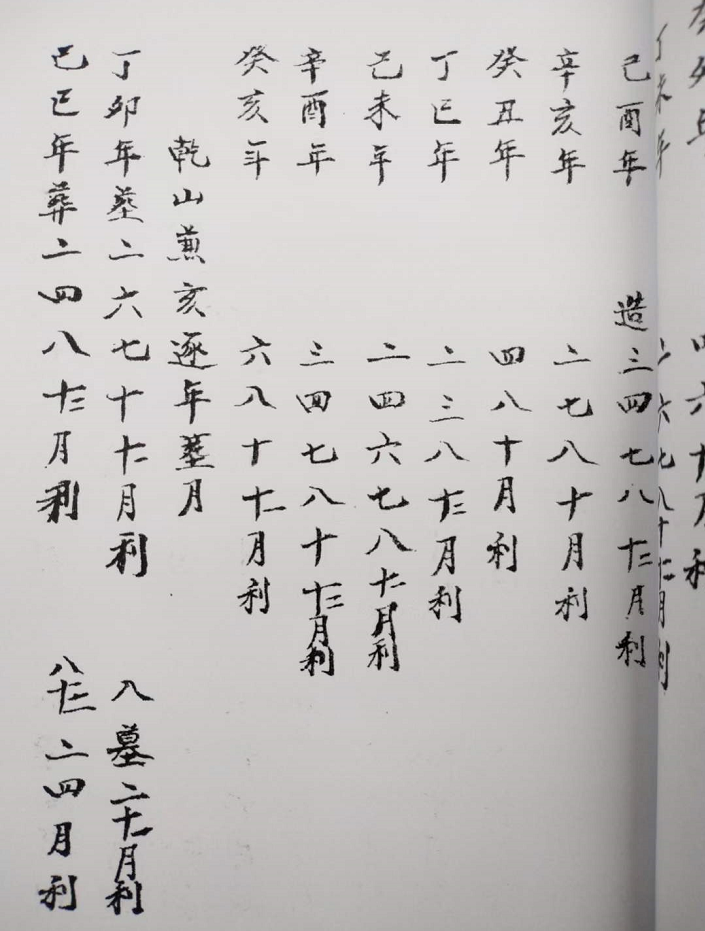 己酉年 造三四七八十二月利
辛亥年 二七八十月利
癸丑年 四八十月利
丁巳年 二三八十二月利
己未年 二四六七八十二月利
辛酉年 三四七八十十二月利
癸亥年 六八十十一月利
乾山兼亥逐年塟月
丁卯年塟二六七十十一月利 入墓二十一月利
己巳年葬二四八十二月利 八十二二四月利